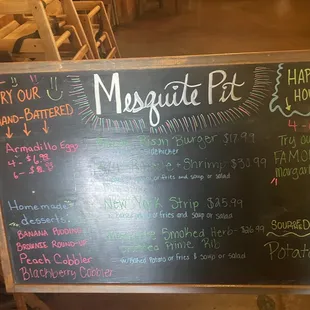 Mesquite Pit
TRY OUR
HAND-BATTERED
Armadillo Eggs
4 - $6.98
Homemade
desserts
BANANA PUDDING
BROWNIE ROUND-UP
Peach Cobbler
Blackberry Cobbler
Bison Burger $17.99
+ Shrimp $32.99
w/ fries and soup or salad
NEW YORK STRIP $25.99
fries and soup or salad
Smoked Herb-
Prime Rib
w/ Baked Potato or fries & soup or salad
HAP
HO
Try ou
FAMO
margar
Potato